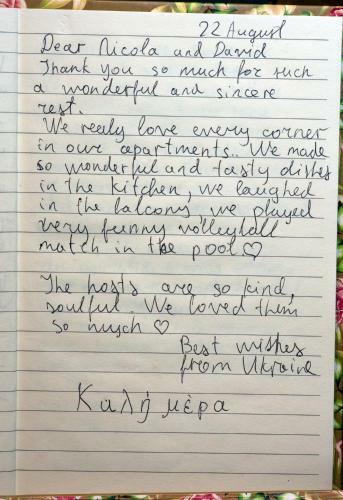 22 August
Dear Nicola and David
Thank you so much for such
a wonderful and sincere
rest.
We realy love every corner
in our apartments.. We made
so wonderful and tasty dishes
in the kitchen, we laughed
in the balcony we played
very funny volleyball
match in the pool ♡
The hosts are so kind,
soulful. We loved them
so much ♡
Best wishes
from Ukraine
Καλή μέρα